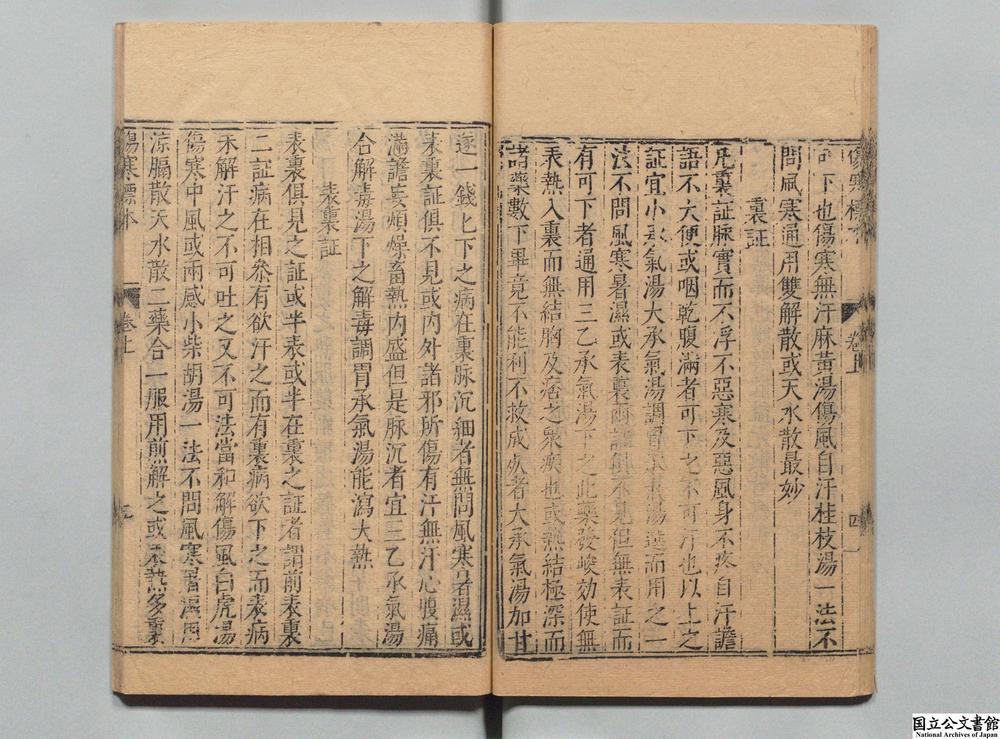 傷寒標本 卷上 四
可下也傷寒無汗麻黃湯傷風自汗桂枝湯一法不
問風寒通用雙解散或天水散最妙
裏証
凡裏証脉實而不浮不惡寒及惡風身不疼自汗譫
語不大便或咽乾腹滿者可下之不可汗也以上之
証宜小承氣湯大承氣湯調胃承氣湯選而用之一
法不問風寒暑濕或表裏兩証俱不見但無表証而
有可下者通用三乙承氣湯下之此藥發峻効使無
表熱入裏而無結胸及痞之衆疾也或熱結極深而
諸藥數下畢竟不能利不救成病者大承氣湯加甘
遂一錢匕下之病在裏脉沉細者無問風寒暑濕或
表裏証俱不見或內外諸邪所傷有汗無汗心腹痛
滿譫妄煩燥畜熱內盛但是脉沉者宜三乙承氣湯
合解毒湯下之解毒調胃承氣湯能瀉大熱
表裏証
表裏俱見之証或半表或半在裏之証者謂前表裏
二証病在相叅有欲汗之而有裏病欲下之而表病
未解汗之不可吐之又不可法當和解傷風白虎湯
傷寒中風或兩感小柴胡湯一法不問風寒暑濕用
涼膈散天水散二藥合一服用煎解之或表熱多裏
傷寒標本 卷上
国立公文書館
National Archives of Japan